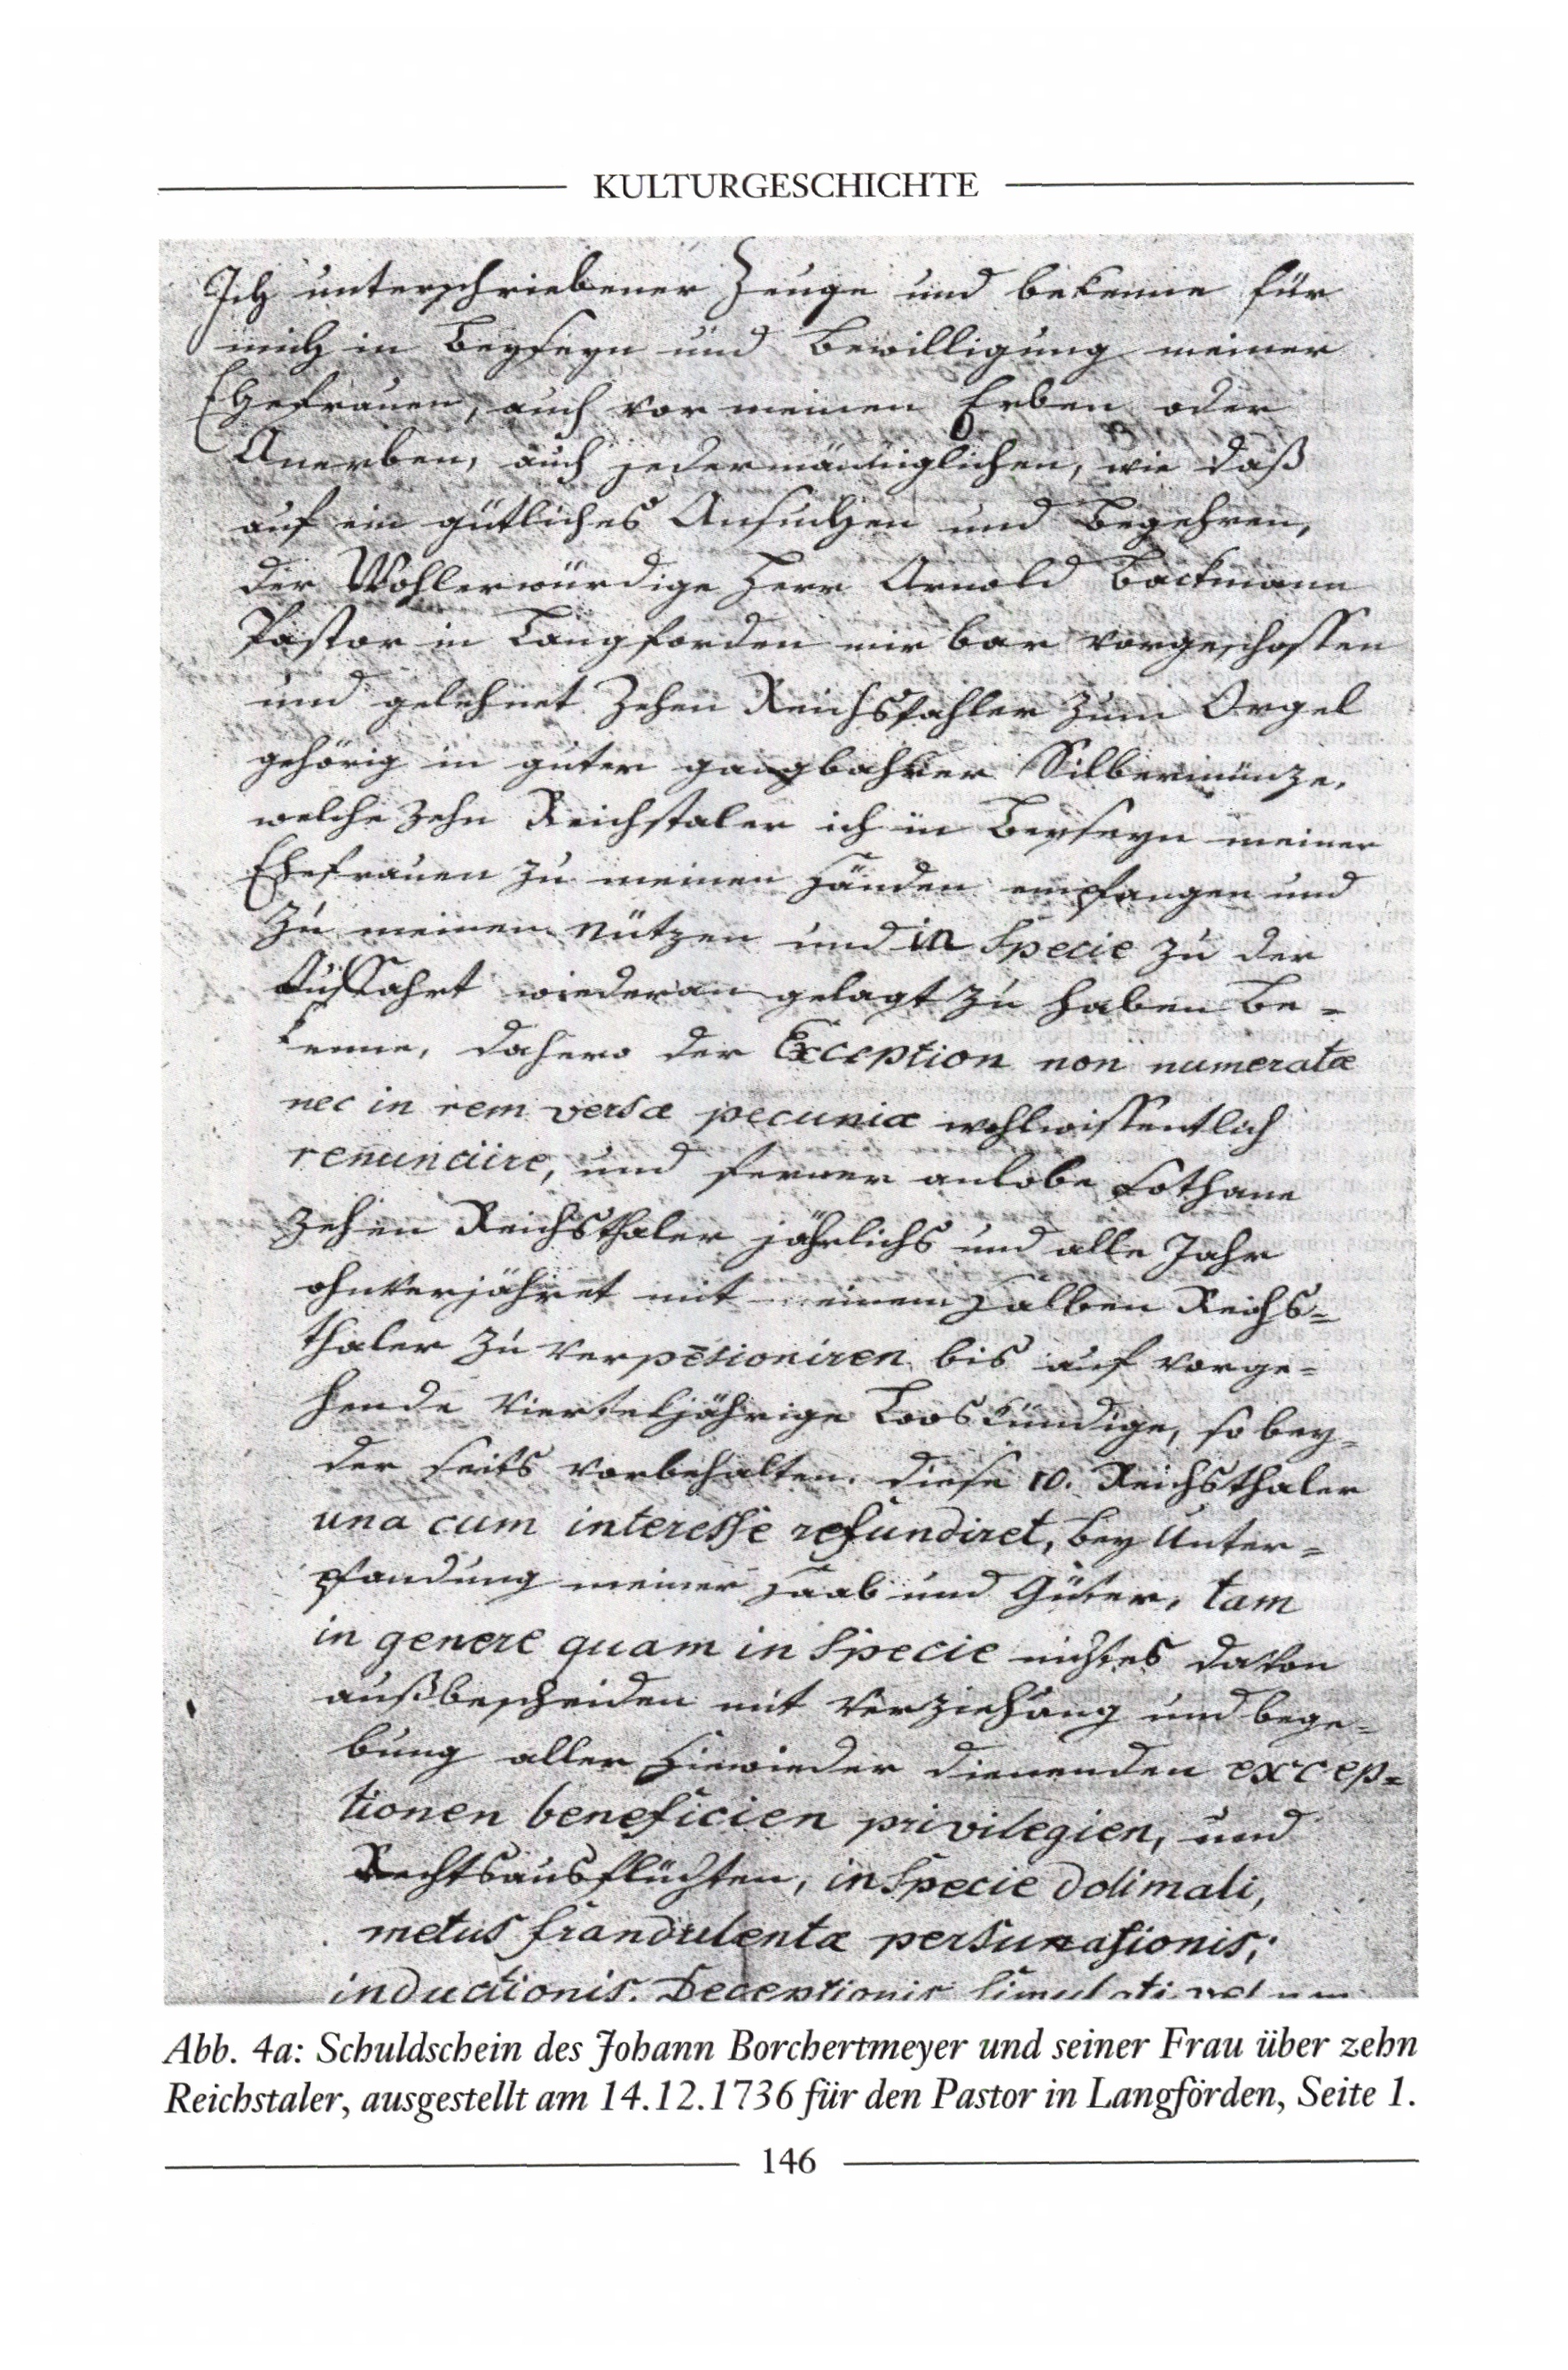 KULTURGESCHICHTE
Ich unterschriebener Zeuge und bekenne für
mich in Beyseyn und Bewilligung meiner
Ehefrauen, auch vor meinen Erben oder
Anerben, auch jedermänniglichen, wie daß
auf ein gütliches Ansuchen und Begehren,
der Wohlerwürdige Herr Arnold Backmann
Pastor in Langforden mir bar vorgeschossen
und gelehnet Zehen Reichsthaler zum Orgel
gehörig in guter gangbahrer Silbermünze,
welche zehn Reichstaler ich in Beyseyn meiner
Ehefrauen zu meinen Händen empfangen und
zu meinem nützen und in Specie zu der
wiederan gelagt zu haben be-
kenne, dahero der Exception non numeratæ
nec in rem versæ pecuniæ wohlwissentlich
renunciire, und ferner anlobe sothane
zehen Reichsthaler jährlichs und alle Jahr
ohnverjähret mit einem halben Reichs=
thaler zu verpēsioniren bis auf vorge=
hende vierteljährige Looskündige, so bey=
der seits vorbehalten. diese 10. Reichsthaler
una cum interesse refundiret, bey Unter=
pfandung meiner Haab und Güter, tam
in genere quam in Specie nichtes davon
außbescheiden mit Verziehung und bege=
bung aller hiewieder dienenden excep=
tionen beneficien privilegien, und
Rechtsausflüchten, in Specie doli mali,
metus fraudulentæ persuasionis,
inductionis. Deceptionis simulati
Abb. 4a: Schuldschein des Johann Borchertmeyer und seiner Frau über zehn
Reichstaler, ausgestellt am 14.12.1736 für den Pastor in Langförden, Seite 1.
146